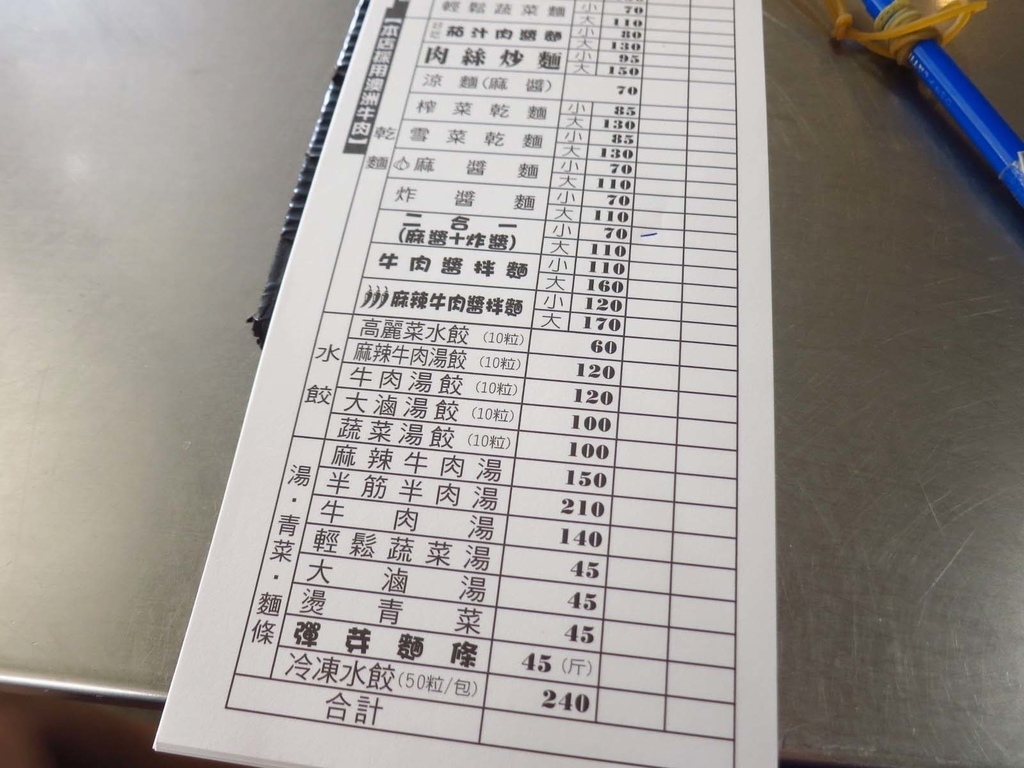 【本店採用澳洲牛肉】
乾麵
輕鬆蔬菜麵 小 70
大 110
茄汁肉醬麵 小 80
大 130
肉絲炒麵 小 95
大 150
涼麵(麻醬) 70
榨菜乾麵 小 85
大 130
雪菜乾麵 小 85
大 130
麻醬麵 小 70
大 110
炸醬麵 小 70
大 110
二合一 小 70
(麻醬+炸醬) 大 110
牛肉醬拌麵 小 110
大 160
麻辣牛肉醬拌麵 小 120
大 170
水餃
高麗菜水餃(10粒) 60
麻辣牛肉湯餃(10粒) 120
牛肉湯餃(10粒) 120
大滷湯餃(10粒) 100
蔬菜湯餃(10粒) 100
湯·青菜·麵條
麻辣牛肉湯 150
半筋半肉湯 210
牛肉湯 140
輕鬆蔬菜湯 45
大滷湯 45
燙青菜 45
彈芽麵條 45(斤)
冷凍水餃(50粒/包) 240
合計